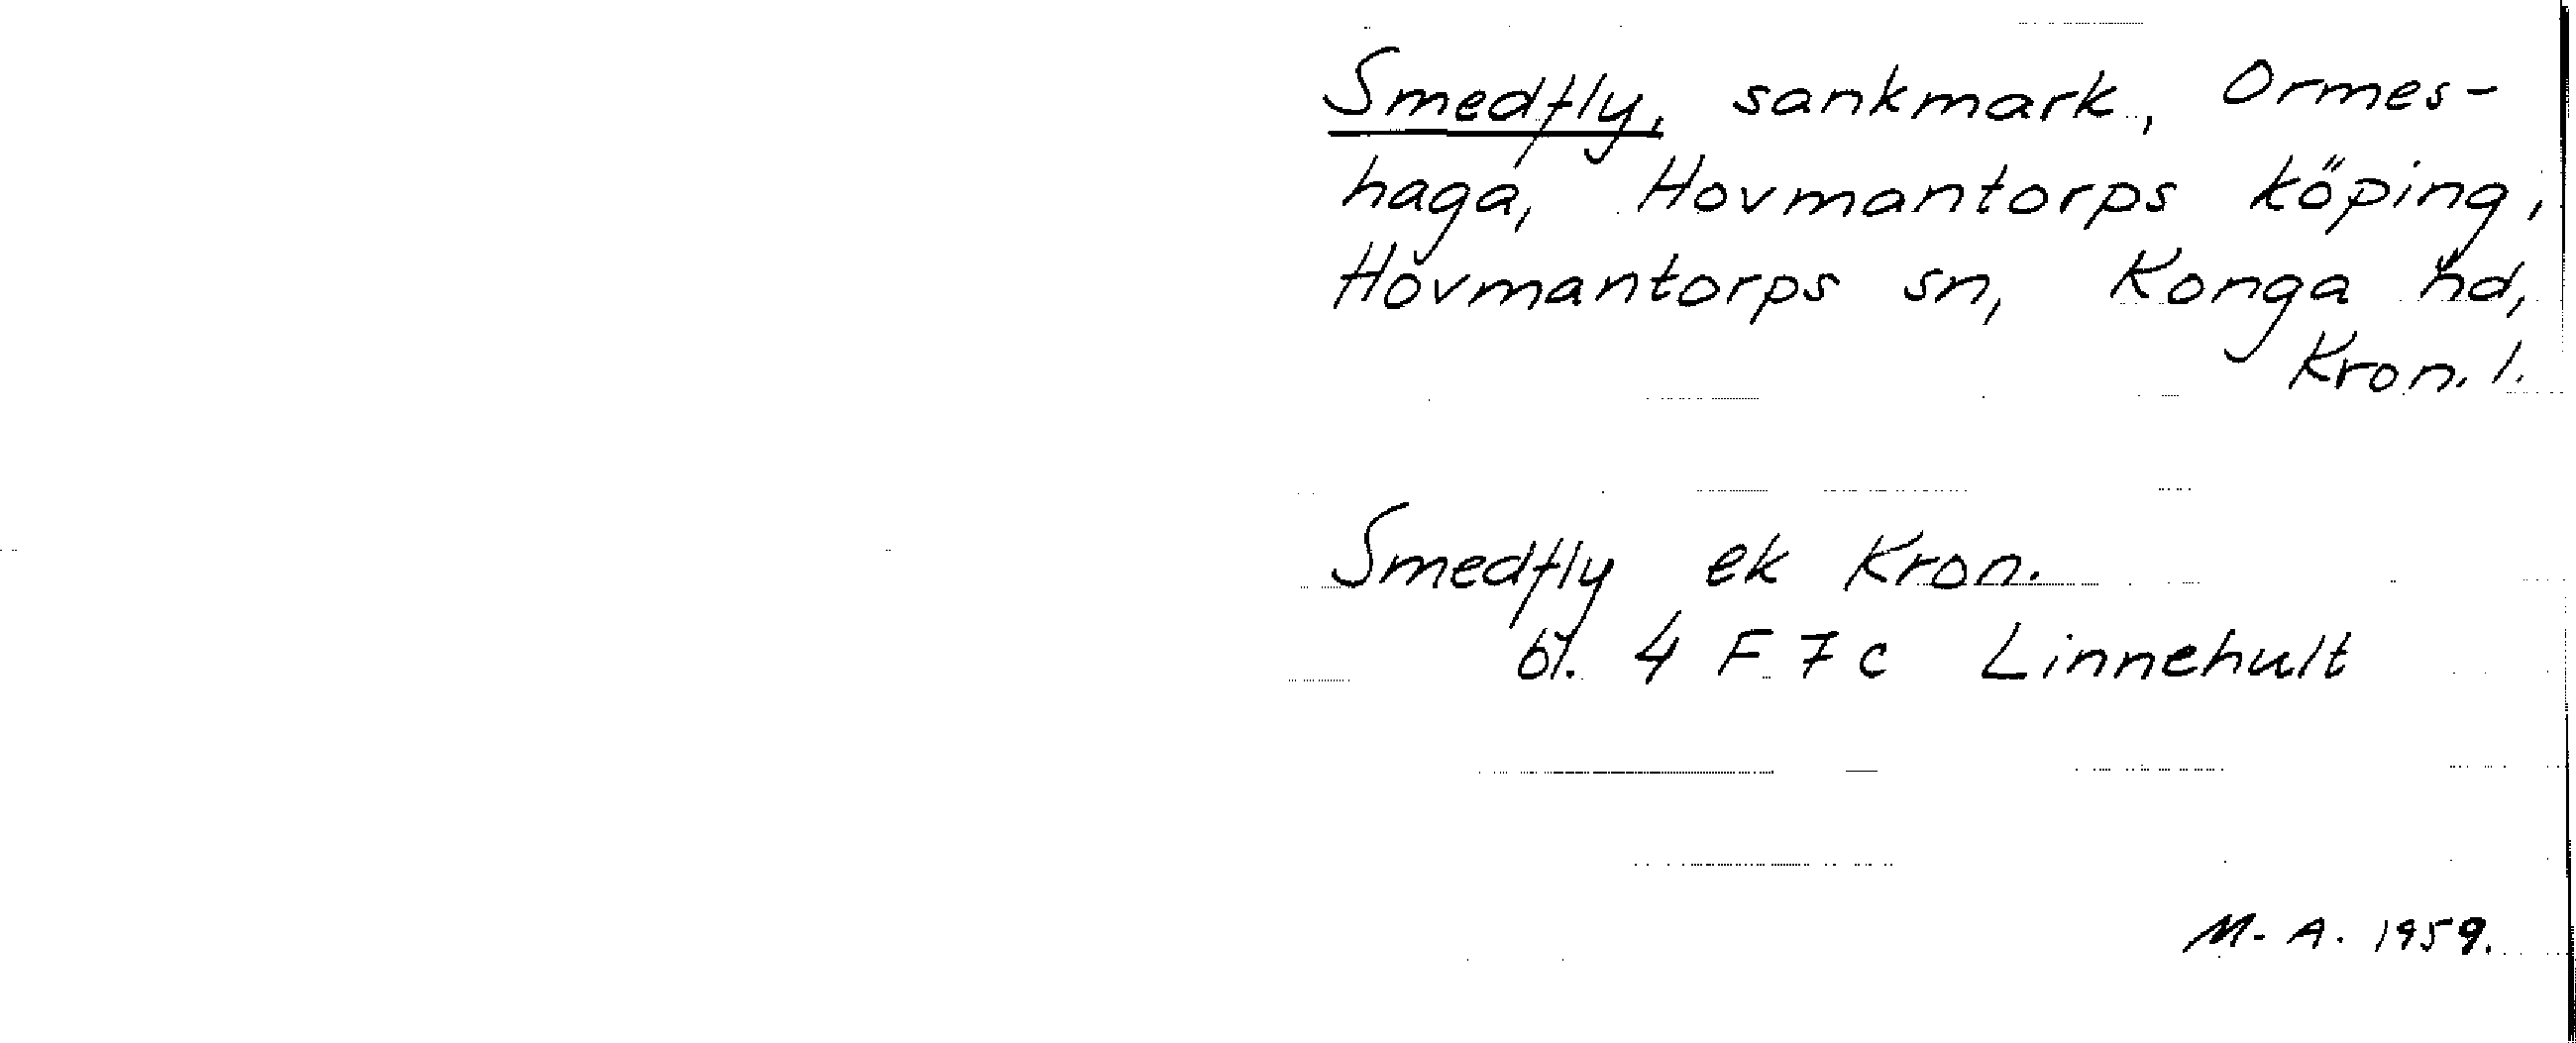 Smedfly, sankmark, Ormes-
haga, Hovmantorps köping,
Hovmantorps sn, Konga hd,
Kron. l.
Smedfly ek Kron.
bl. 4 F 7 c Linnehult
M-A. 1959.